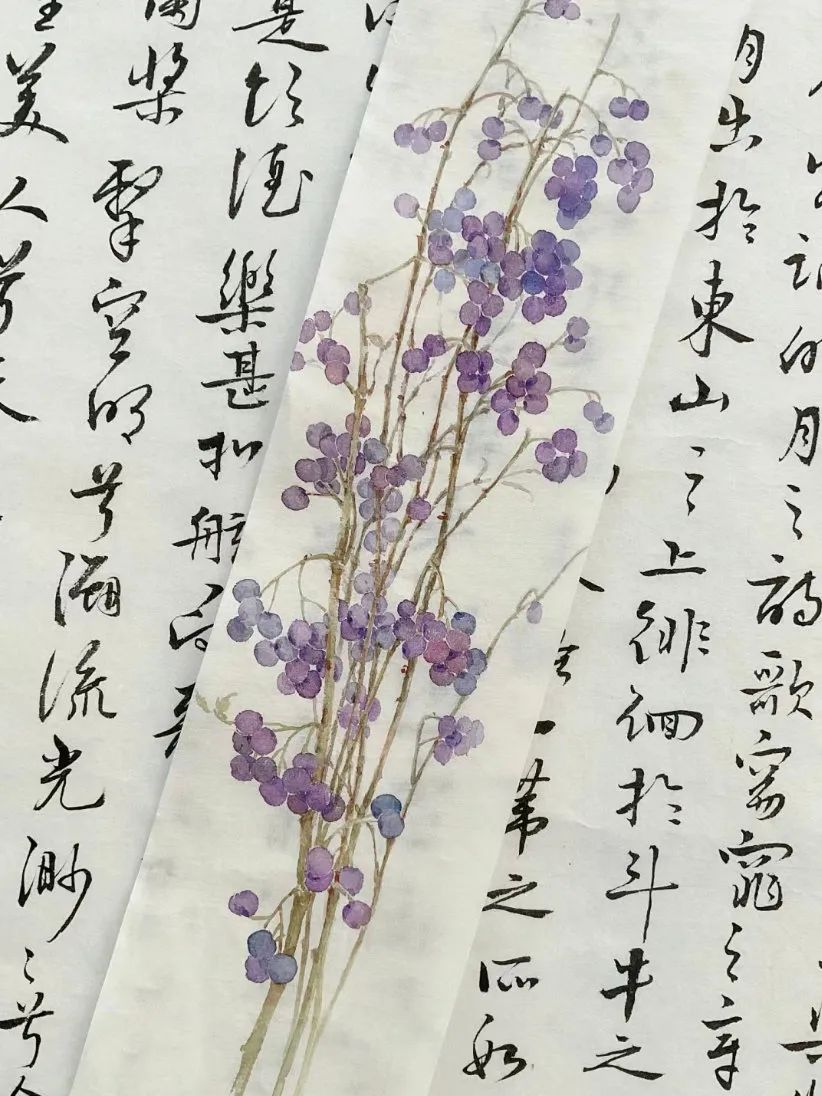 誦明月之詩歌窈窕之章
月出於東山之上徘徊於斗牛之
一葦之所如
是飲酒樂甚扣舷而歌
蘭槳擊空明兮溯流光渺〻兮
美人兮天